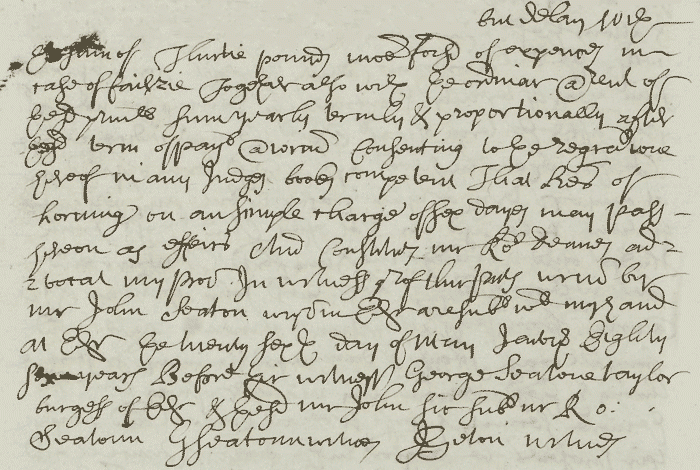 but delay with
sum of Thurtie pounds money forsd of expences in
case of failzie Togither also with ye ordinar @rent of
ye sd prinll soum yearly termly & proportionally after
ye sd term of payt Consenting to ye regratione
hereof in any Judges books competent That Lres of
horning on an simple charge of sex dayes may pass
hereon as effeirs And Constitutes mr Ro: Deanes ad=
=vocat my pror In witness qrof thir pnts writn by
mr John Seaton are subt wt my hand
at ye twenty sext day of May Jaivij Eighty
years Before thir witness George Seatone taylor
burgess of & ye sd mr John sic subr Ro:
Seatoun G Seatoun witnes Jo Seton witnes